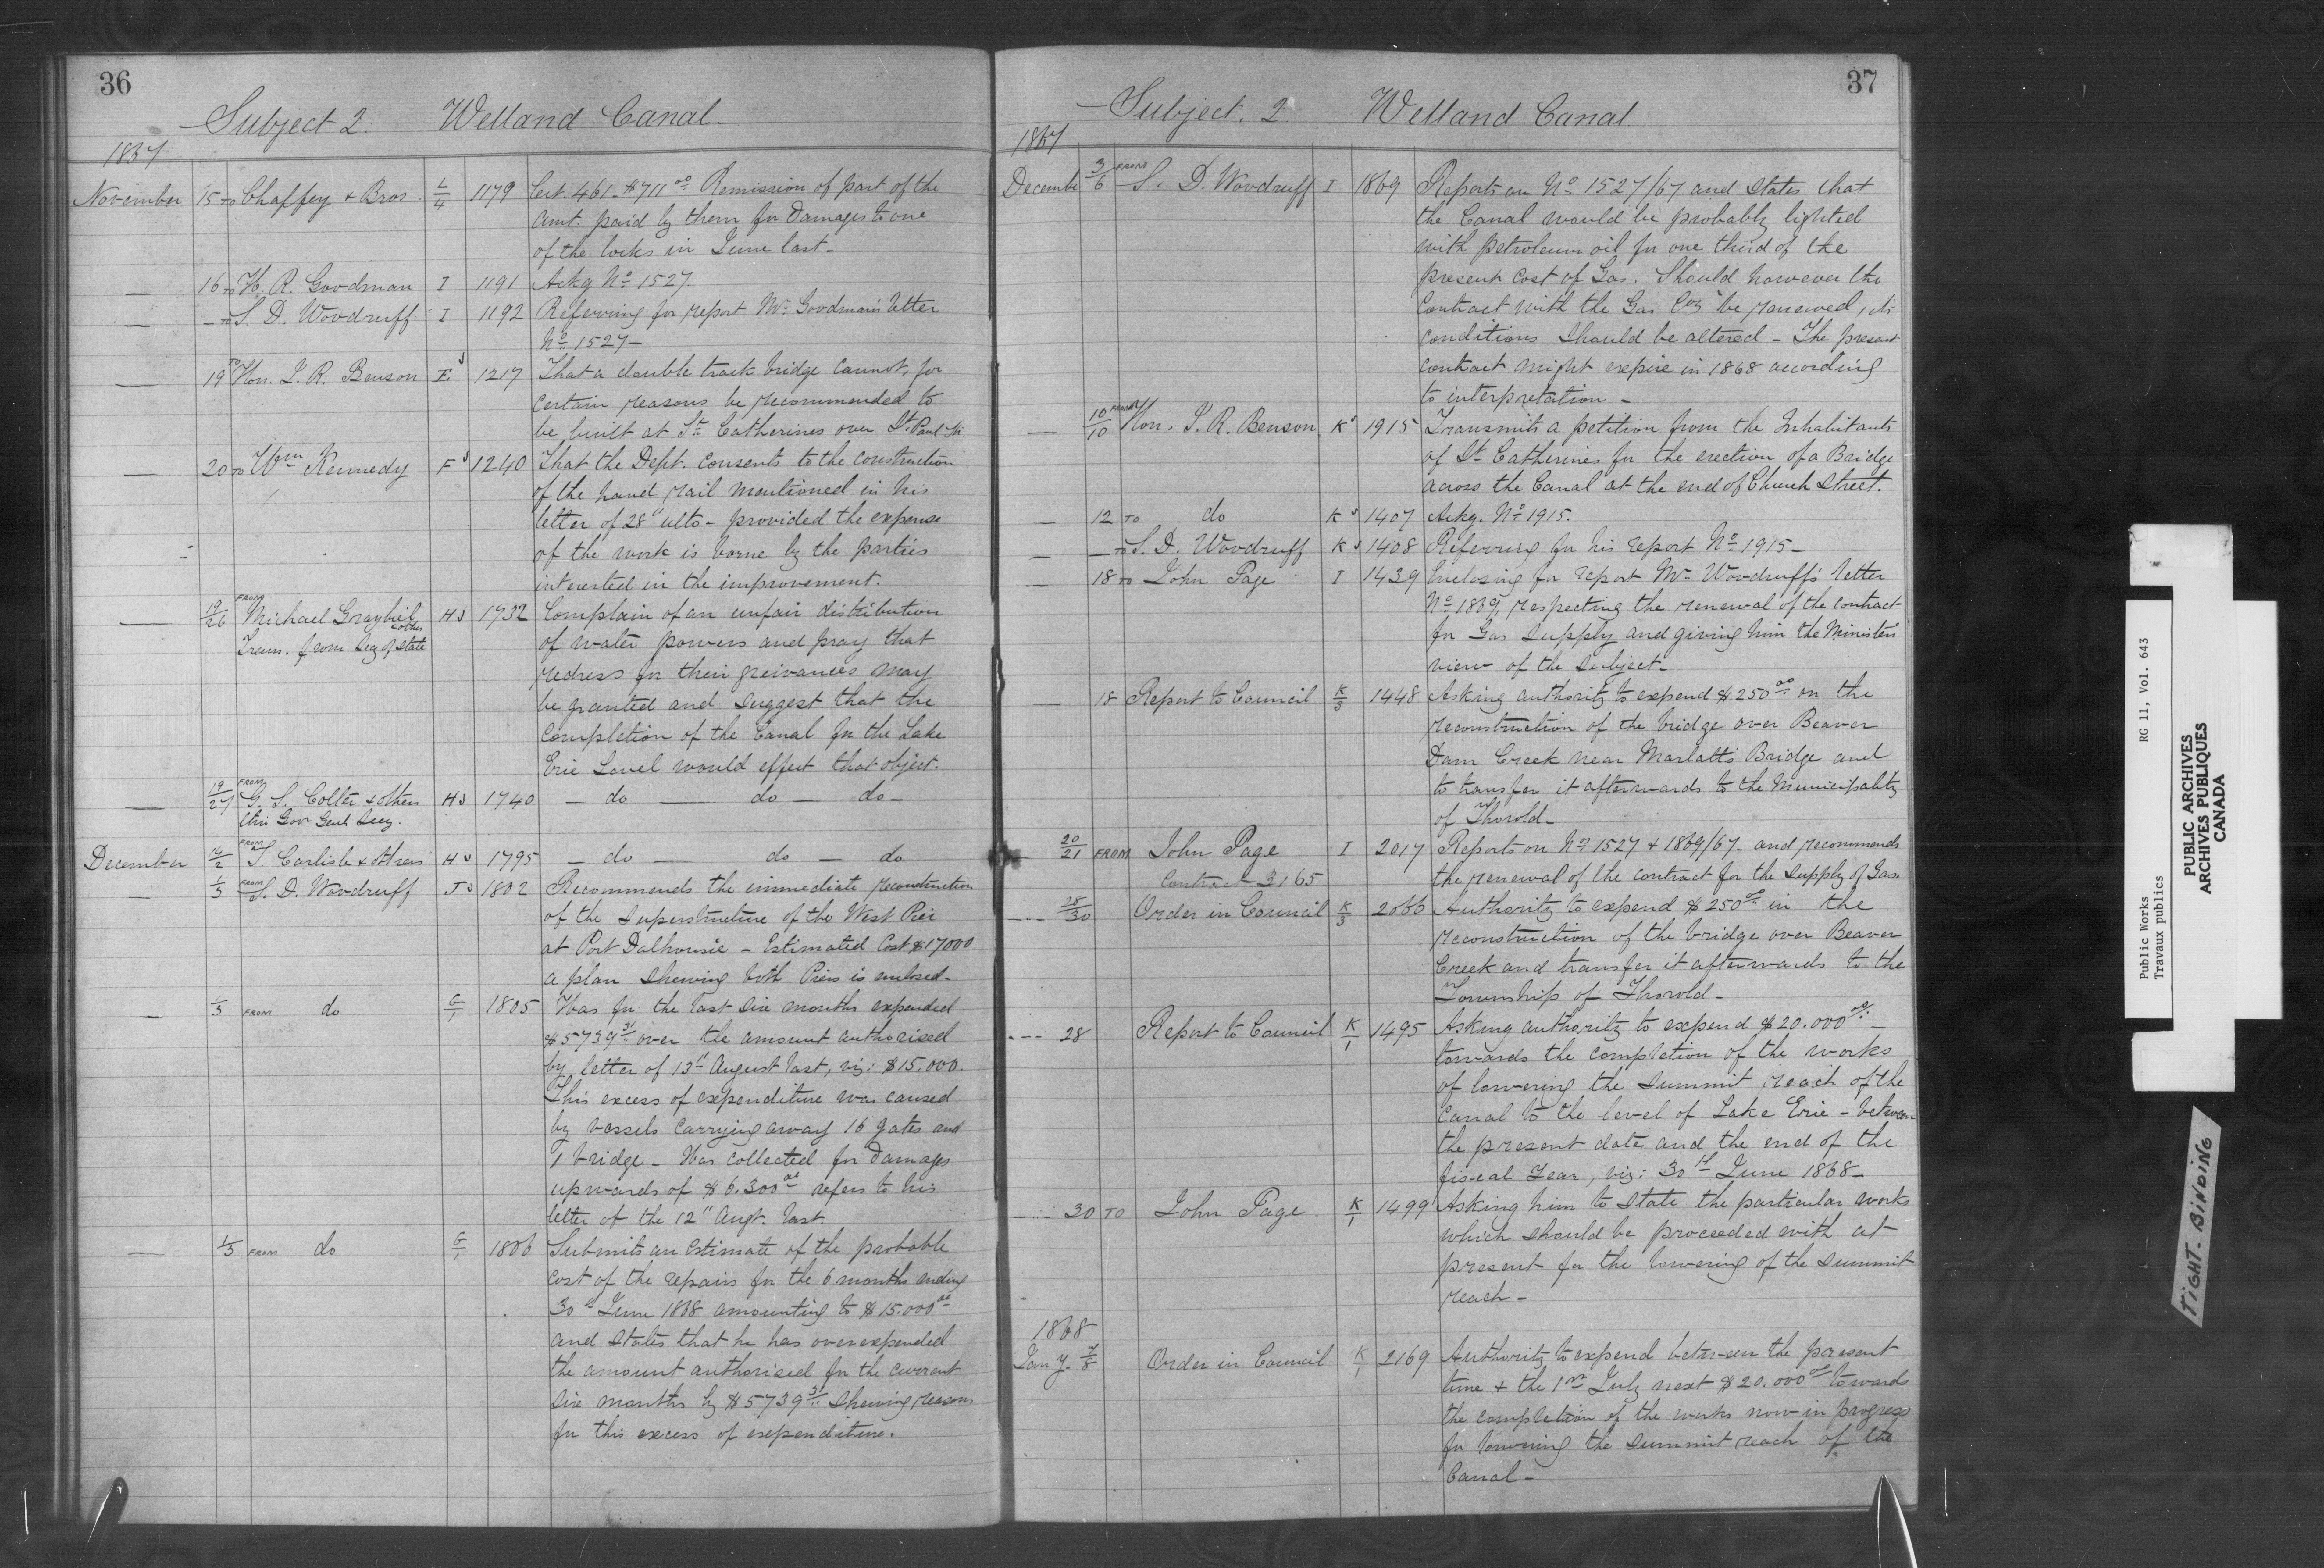 36
Subject 2. Welland Canal.
1867
November 15 TO Chaffey & Bros. L/4 1179 Cert. 461. $711.00 Remission of part of the
amt. paid by them for Damages to one
of the locks in June last.
— 16 TO H. R. Goodman I 1191 Ackg No 1527.
— — TO S. D. Woodruff. I 1192 Referring for report Mr. Goodman's letter
No 1527 —
— 19 TO Hon. J. R. Benson E J 1217 That a double track bridge cannot, for
certain reasons be recommended to
be built at St. Catherines over St. Paul St.
— 20 TO Wm Kennedy F J 1240 That the Dept. consents to the construction
of the hand rail mentioned in his
letter of 28" ulto - provided the expense
of the work is borne by the parties
interested in the improvement.
— 19/26 FROM Michael Graybiel & others H J 1732 Complain of an unfair distribution
Trans. from Secy of State
of water powers and pray that
redress for their greivances may
be granted and suggest that the
completion of the Canal for the Lake
Erie Level would effect that object.
— 19/27 FROM G. S. Colter & others H J 1740 — do — do — do —
thro' Govr Genl Secy.
December 14/2 FROM T. Carlisle & others H J 1795 — do — do — do
— 1/3 FROM S. D. Woodruff J J 1802 Recommends the immediate reconstruction
of the Superstructure of the West Pier
at Port Dalhousie - Estimated Cost $17000
a plan shewing both Piers is enclosed.
— 1/3 FROM do G/1 1805 Has for the last six months expended
$5739.31 over the amount authorised
by letter of 13" August last, viz: $15.000.
This excess of expenditure was caused
by vessels carrying away 16 gates and
1 bridge - Has collected for Damages
upwards of $6.300.00 refers to his
letter of the 12" Augt. last.
— 1/3 FROM do G/1 1806 Submits an Estimate of the probable
cost of the repairs for the 6 months ending
30th June 1868 amounting to $15.000.00
and states that he has overexpended
the amount authorised for the current
six months by $5739.31 shewing reasons
for this excess of expenditure.
37
Subject. 2. Welland Canal.
1867
Decembe 3/6 FROM S. D. Woodruff I 1869 Reports on No 1527/67 and states that
the Canal would be probably lighted
with petroleum oil for one third of the
present cost of Gas. Should however the
Contract with the Gas Coy be renewed, its
conditions should be altered - The present
contract might expire in 1868 according
to interpretation -
— 10/10 FROM Hon. J. R. Benson. K J 1915 Transmits a petition from the Inhabitants
of St Catherines for the erection of a Bridge
across the Canal at the end of Church Street.
— 12 TO do K J 1407 Ackg. No 1915.
— — TO S. D. Woodruff K J 1408 Referring for his report No 1915 —
— 18 TO John Page I 1439 Enclosing for report Mr. Woodruff's letter
No 1869, respecting the renewal of the contract
for Gas supply and giving him the Minister's
view of the subject.
— 18 Report to Council K/3 1448 Asking authority to expend $250.00 on the
reconstruction of the bridge over Beaver
Dam Creek near Marlatt's Bridge and
to transfer it afterwards to the Municipality
of Thorold.
— 20/21 FROM John Page I 2017 Reports on No 1527 & 1869/67 - and recommends
Contract 3165
the renewal of the contract for the supply of Gas.
— 28/30 Order in Council K/3 2066 Authority to expend $250.00 in the
reconstruction of the bridge over Beaver
Creek and transfer it afterwards to the
Township of Thorold -
— 28 Report to Council K/1 1495 Asking authority to expend $20.000.00 —
towards the completion of the works
of lowering the summit reach of the
Canal to the level of Lake Erie - between
the present date and the end of the
fiscal Year, viz: 30th June 1868 —
— 30 TO John Page. K/1 1499 Asking him to state the particular works
which should be proceeded with at
present for the lowering of the summit
reach —
1868
Jan'y. 7/8 Order in Council K/1 2169 Authority to expend between the present
time & the 1st July next $20.000.00 towards
the completion of the works now in progress
for lowering the summit reach of the
Canal —
Public Works RG 11, Vol. 643
Travaux publics
PUBLIC ARCHIVES
ARCHIVES PUBLIQUES
CANADA
TIGHT-BINDING